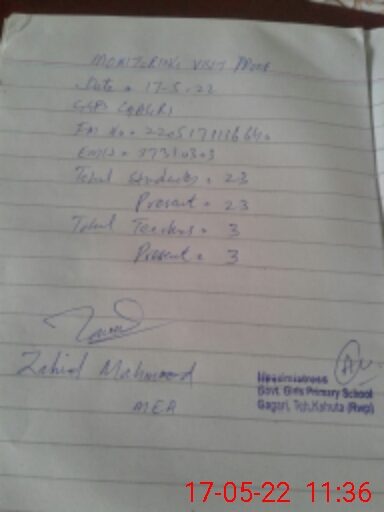 MONITORING VISIT PROOF
Date = 17-5-22
GGPS GAGARI
EMIS = 37310303
Total Students = 23
Present = 23
Total Teachers = 3
Present = 3
Zahid Mahmood
MEA
Headmistress
Govt. Girls Primary School
Gagari, Teh,Kahuta (Rwp)
17-05-22 11:36